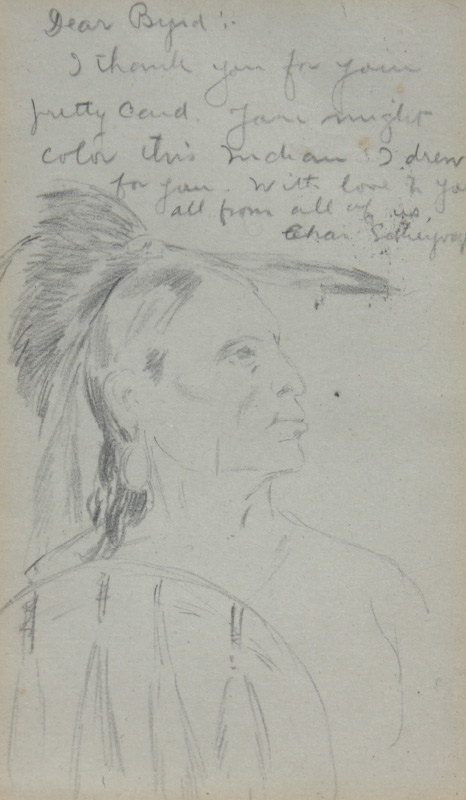 Dear Byrd:.
I thank you for your
pretty Card. You might
color this Indian I drew
for you. With love to yo
all from all of us.
Chas Schreyvog